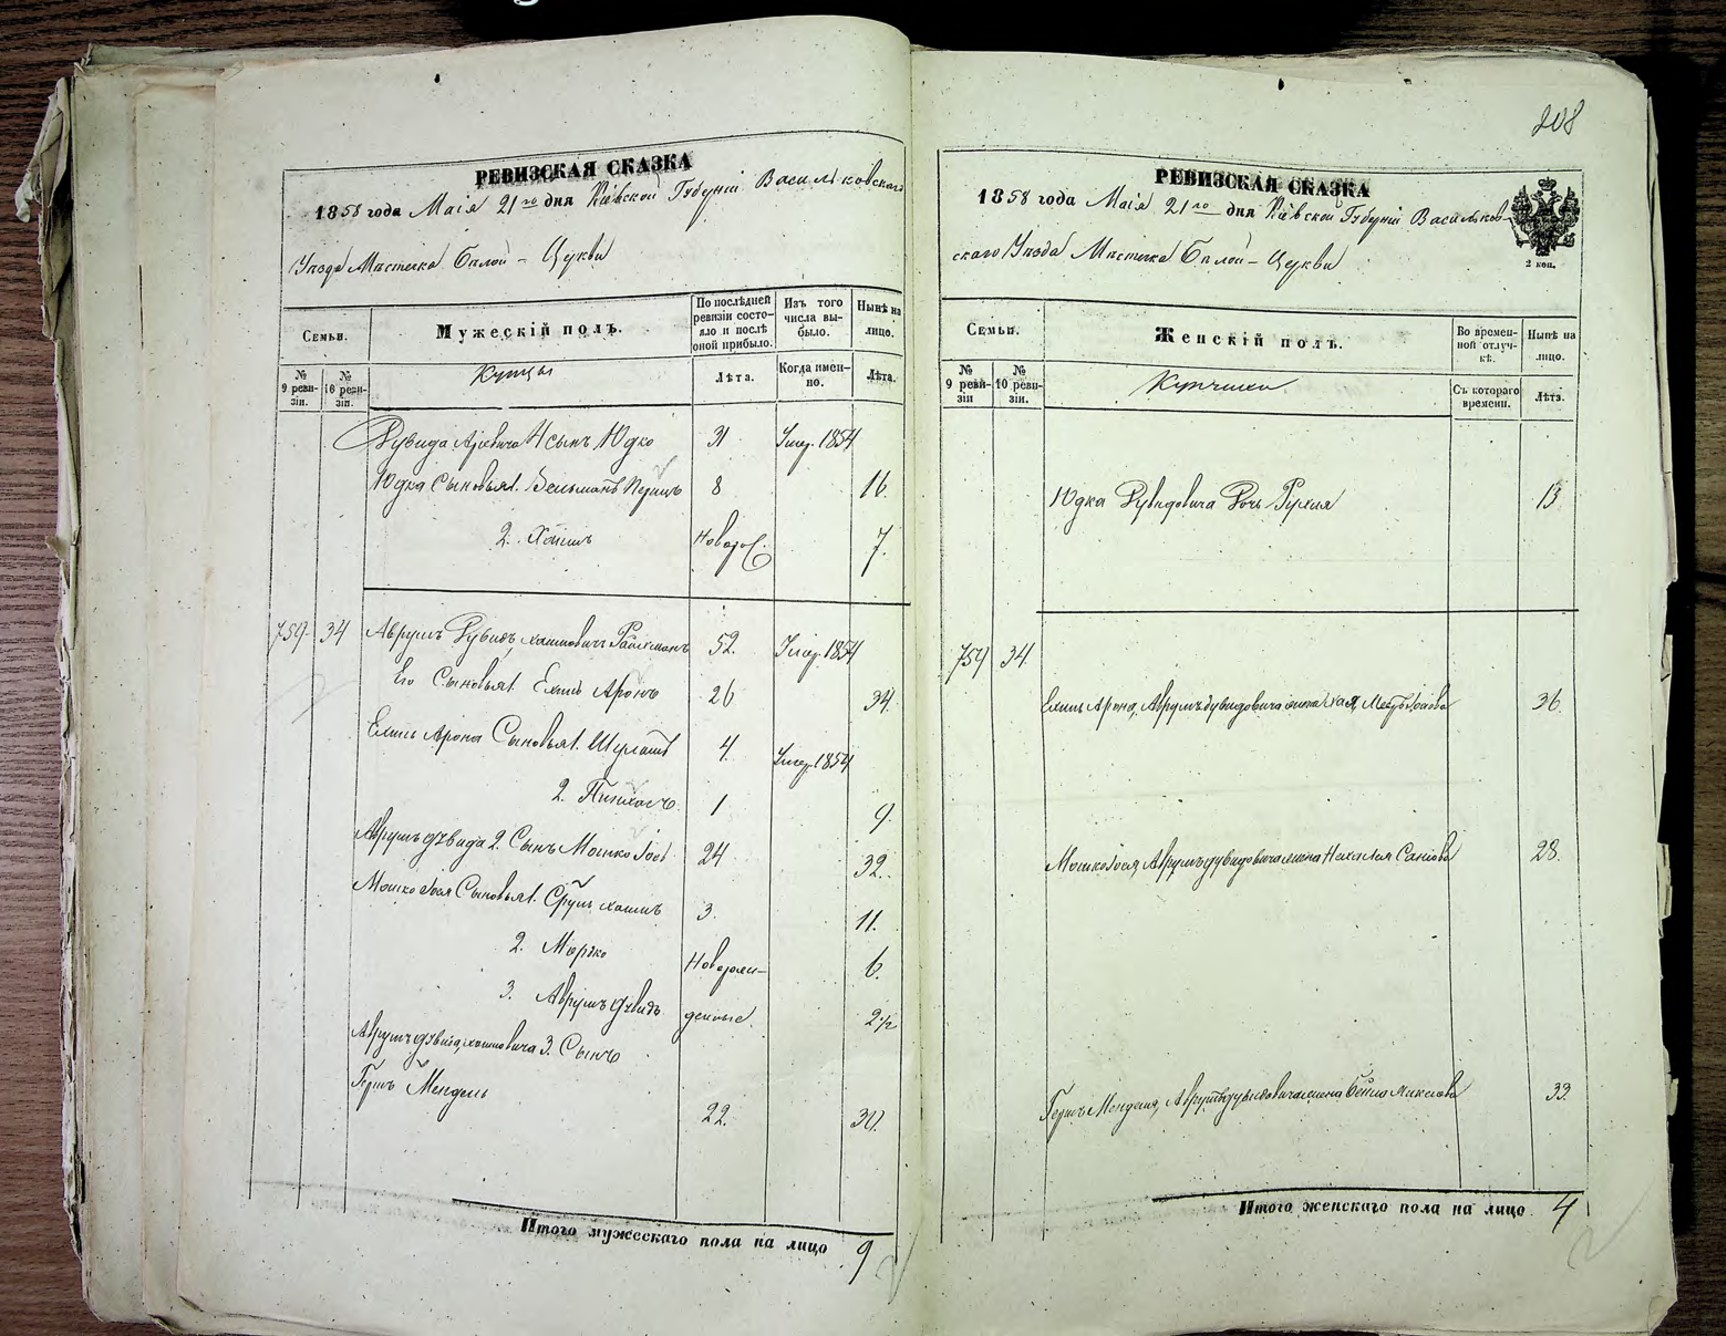 208
РЕВИЗСКАЯ СКАЗКА
1858 года Маія 21го дня Кіевской Губерніи Васильковскаго
Уѣзда Мѣстечка Бѣлой - Церкви
Семьи.
Мужескій полъ.
По послѣдней ревизіи состояло и послѣ оной прибыло.
Изъ того числа выбыло.
Нынѣ на лицо.
№ 9 ревизіи.
№ 10 ревизіи.
Купцы
Лѣта.
Когда именно.
Лѣта.
Дувида 4 сынъ Юдко 31 Умер. 1854
Юдка Сыновья 1. 8 16
2. Хаимъ Новорож. 7.
759 34 Аврумъ Дувидъ Хаимовичъ 52. Умер. 1854
Его Сыновья 1. Аронъ 26 34.
Арона Сыновья 1. 4. Умер. 1854
2. Пинхасъ 1 9
Аврумъ Дувида 2. Сынъ Мошко 24 32.
Мошко Сыновья 1. Сруль Хаимъ 3. 11.
2. Новорож- 6.
3. Аврумъ Дувидъ денные. 2 1/2
Аврумъ Дувида Хаимовича 3. Сынъ
Гершъ Мендель 22. 30.
Итого мужескаго пола на лицо 9
РЕВИЗСКАЯ СКАЗКА
1858 года Маія 21го дня Кіевской Губерніи Васильков-
скаго Уѣзда Мѣстечка Бѣлой - Церкви
2 коп.
Семьи.
Женскій полъ.
Во временной отлучкѣ.
Нынѣ на лицо.
№ 9 ревизіи
№ 10 ревизіи.
Купчихи
Съ котораго времени.
Лѣта.
Юдка Дувидовича Дочь 13
759 34.
Арона Аврумъ Дувидовича жена Хая 36.
Мошко Аврумъ Дувидовича жена 28.
Гершъ Менделя Аврумъ Дувидовича жена Бейла 33.
Итого женскаго пола на лицо 4